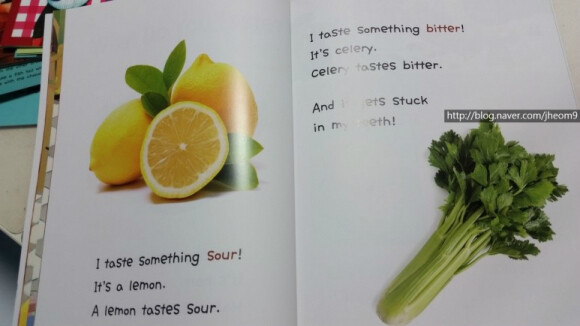 I taste something Sour!
It's a lemon.
A lemon tastes sour.
I taste something bitter!
It's celery.
Celery tastes bitter.
And it gets stuck
in my teeth!
http://blog.naver.com/jheom9